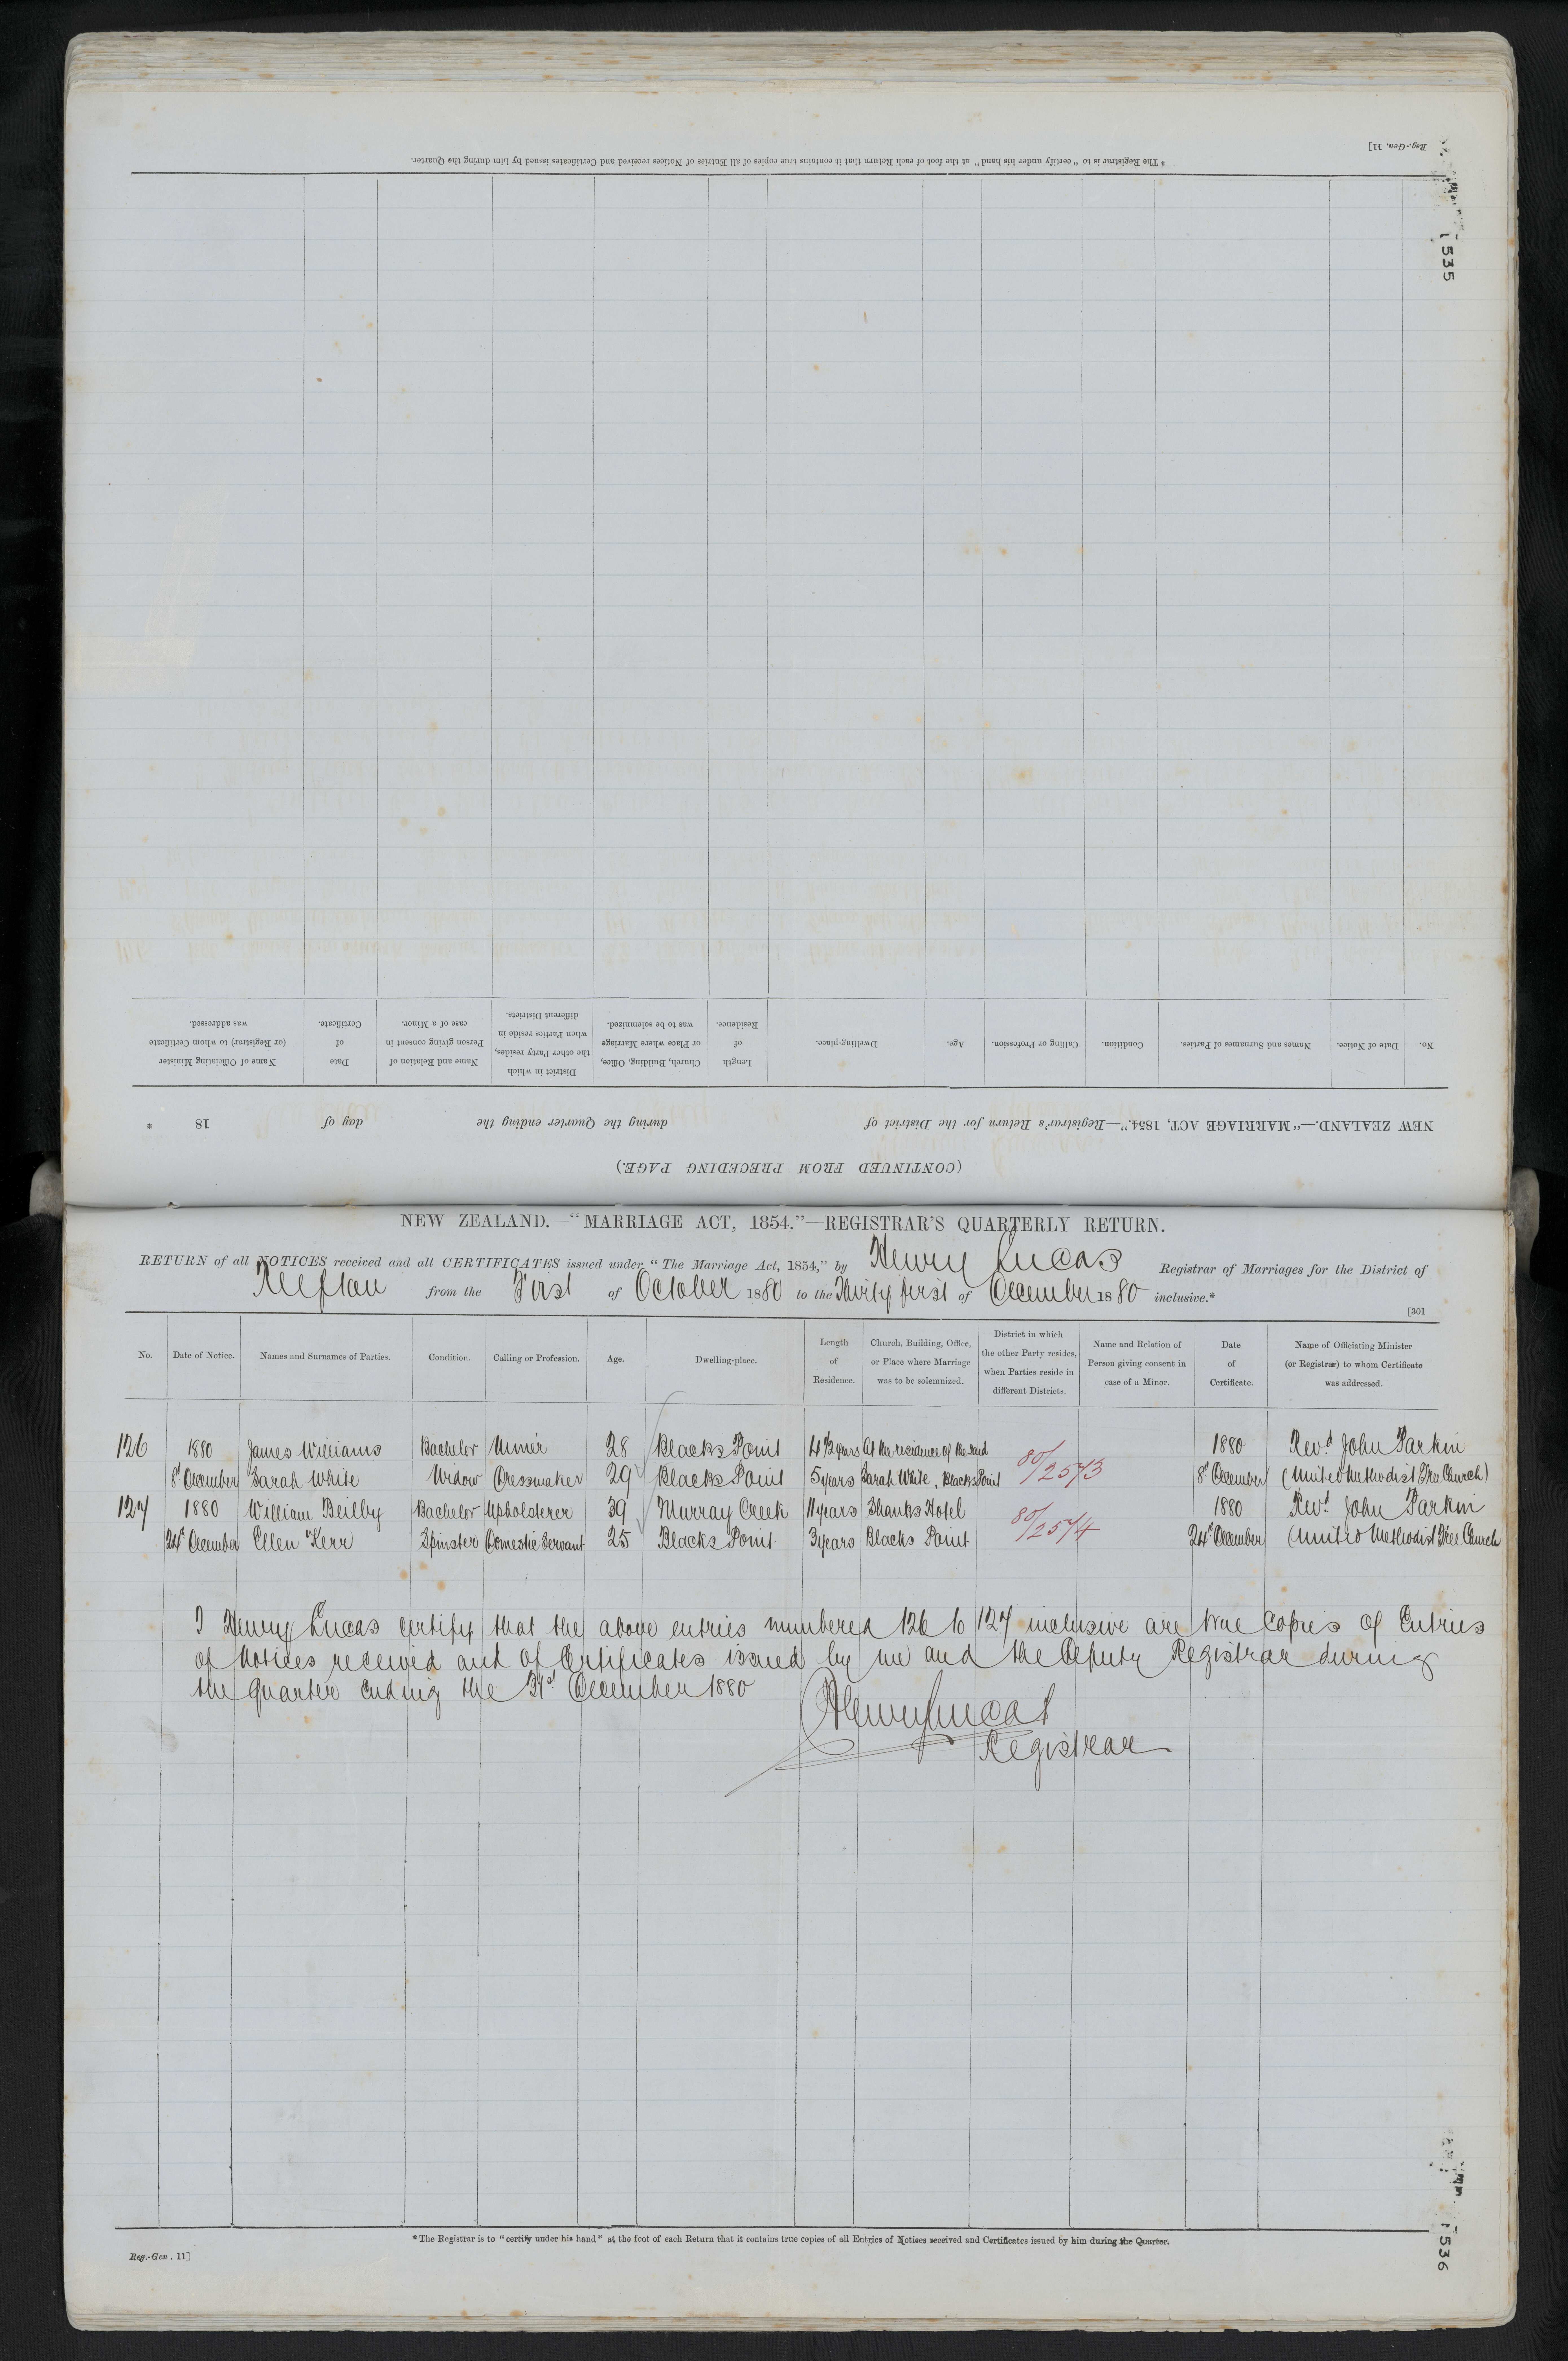 * The Registrar is to "certify under his hand" at the foot of each Return that it contains true copies of all Entries of Notices received and Certificates issued by him during the Quarter.
Reg.-Gen. 11]
535
(CONTINUED FROM PRECEDING PAGE.)
NEW ZEALAND.—"MARRIAGE ACT, 1854."—Registrar's Return for the District of during the Quarter ending the day of 18 *
No.
Date of Notice.
Names and Surnames of Parties.
Condition.
Calling or Profession.
Age.
Dwelling-place.
Length
of
Residence.
Church, Building, Office,
or Place where Marriage
was to be solemnized.
District in which
the other Party resides,
when Parties reside in
different Districts.
Name and Relation of
Person giving consent in
case of a Minor.
Date
of
Certificate.
Name of Officiating Minister
(or Registrar) to whom Certificate
was addressed.
NEW ZEALAND.—"MARRIAGE ACT, 1854."—REGISTRAR'S QUARTERLY RETURN.
RETURN of all NOTICES received and all CERTIFICATES issued under "The Marriage Act, 1854," by Henry Lucas Registrar of Marriages for the District of
Reefton from the First of October 1880 to the Thirty first of December 1880 inclusive.*
[301
No.
Date of Notice.
Names and Surnames of Parties.
Condition.
Calling or Profession.
Age.
Dwelling-place.
Length
of
Residence.
Church, Building, Office,
or Place where Marriage
was to be solemnized.
District in which
the other Party resides,
when Parties reside in
different Districts.
Name and Relation of
Person giving consent in
case of a Minor.
Date
of
Certificate.
Name of Officiating Minister
(or Registrar) to whom Certificate
was addressed.
126 1880 James Williams Bachelor Miner 28 Blacks Point 4 1/2 years At the residence of the said 80/2573 1880 Revd John Parkin
8th December Sarah White Widow Dressmaker 29 Blacks Point 5 years Sarah White, Blacks Point 8th December (United Methodist Free Church)
127 1880 William Beilby Bachelor Upholsterer 39 Murray Creek 11 years Shanks Hotel 80/2574 1880 Revd John Parkin
24th December Ellen Kerr Spinster Domestic Servant 25 Blacks Point 3 years Blacks Point 24th December (United Methodist Free Church
I Henry Lucas certify that the above entries numbered 126 to 127 inclusive are true copies of Entries
of Notices received and of Certificates issued by me and the Deputy Registrar during
the quarter ending the 31st December 1880
Henry Lucas
Registrar
* The Registrar is to "certify under his hand" at the foot of each Return that it contains true copies of all Entries of Notices received and Certificates issued by him during the Quarter.
Reg.-Gen. 11]
536